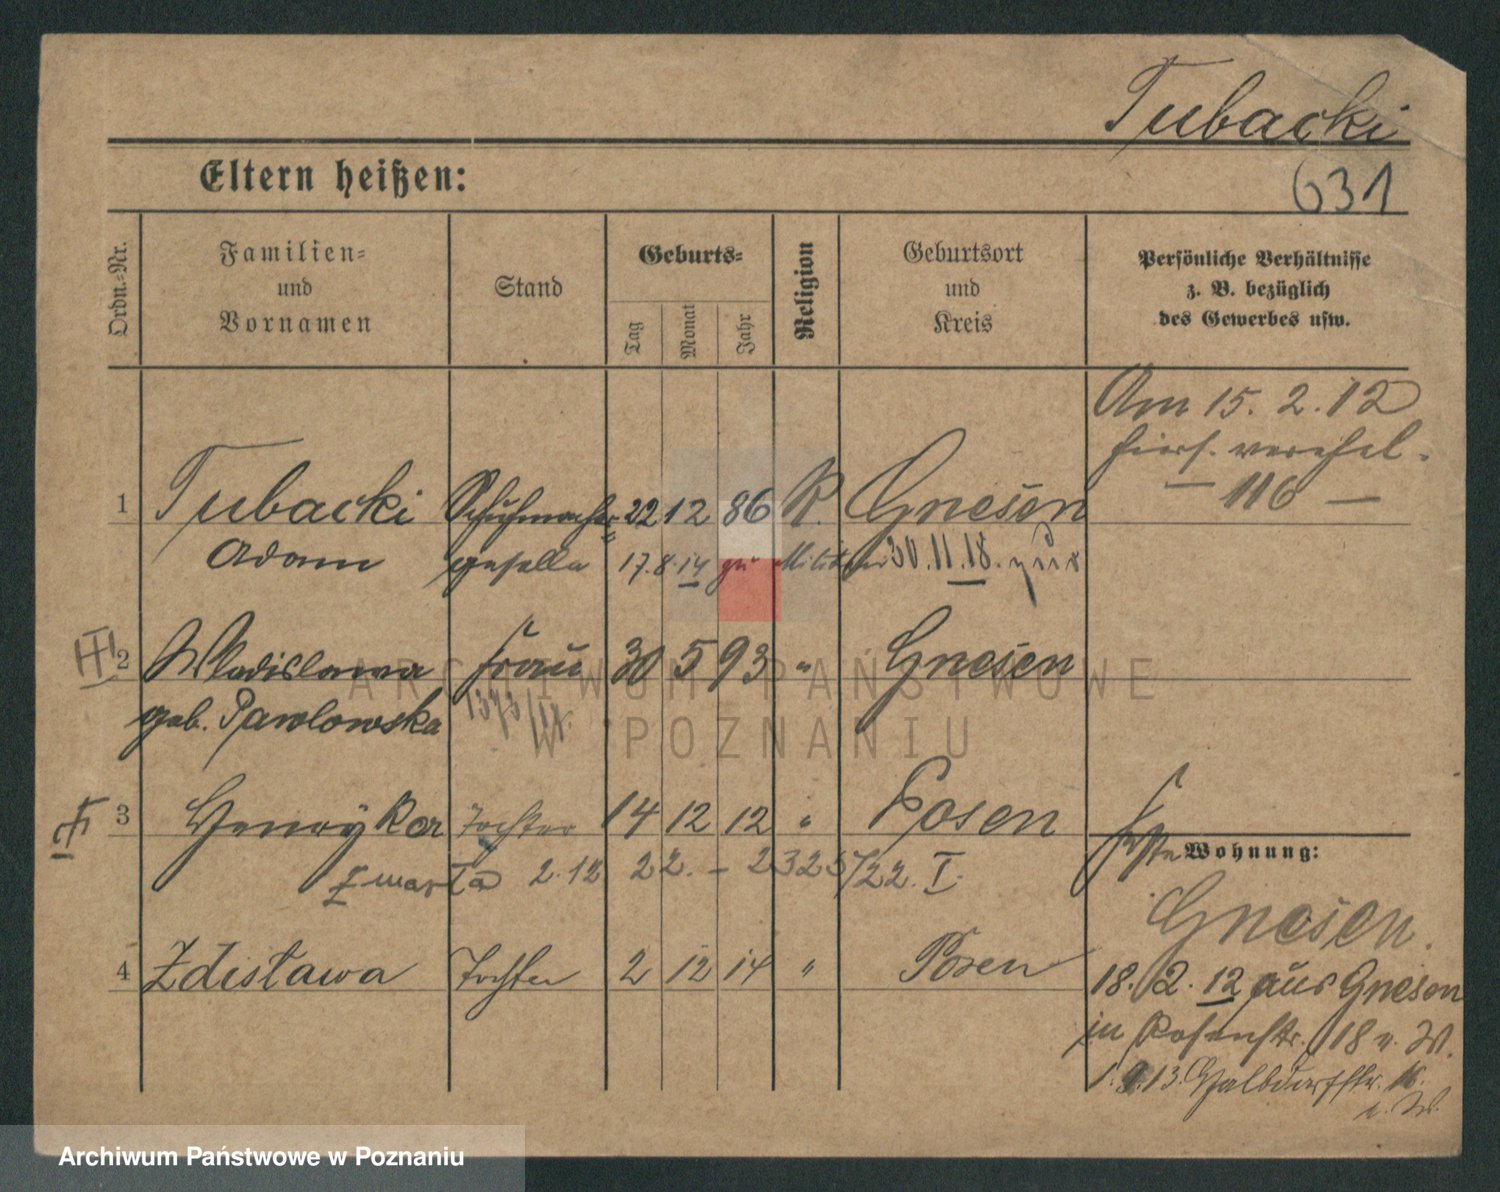 Tubacki
Eltern heißen:
631
Ordn.-Nr.
Familien-
und
Vornamen
Stand
Geburts-
Tag
Monat
Jahr
Religion
Geburtsort
und
Kreis
Persönliche Verhältnisse
z. B. bezüglich
des Gewerbes usw.
Am 15. 2. 12
hiers. verehel.
— 116 —
1 Tubacki Schuhmacher= 22 12 86 R. Gnesen
Adam geselle 17. 8. 14 zu Militär 30. 11. 18. zur
2 Wladislawa Frau 30 5 93 " Gnesen
geb. Pawlowska 1373/14.
3 Henryka Tochter 14 12 12 " Posen
zmarła 2. 12 22. - 2325/22. I.
4 Zdisława Tochter 2 12 14 " Posen
Wohnung:
Gnesen.
18. 2. 12 aus Gnesen
in Posenstr. 18 u. W.
1. 9. 13. 16.
u. W.
ARCHIWUM PAŃSTWOWE
W POZNANIU
Archiwum Państwowe w Poznaniu